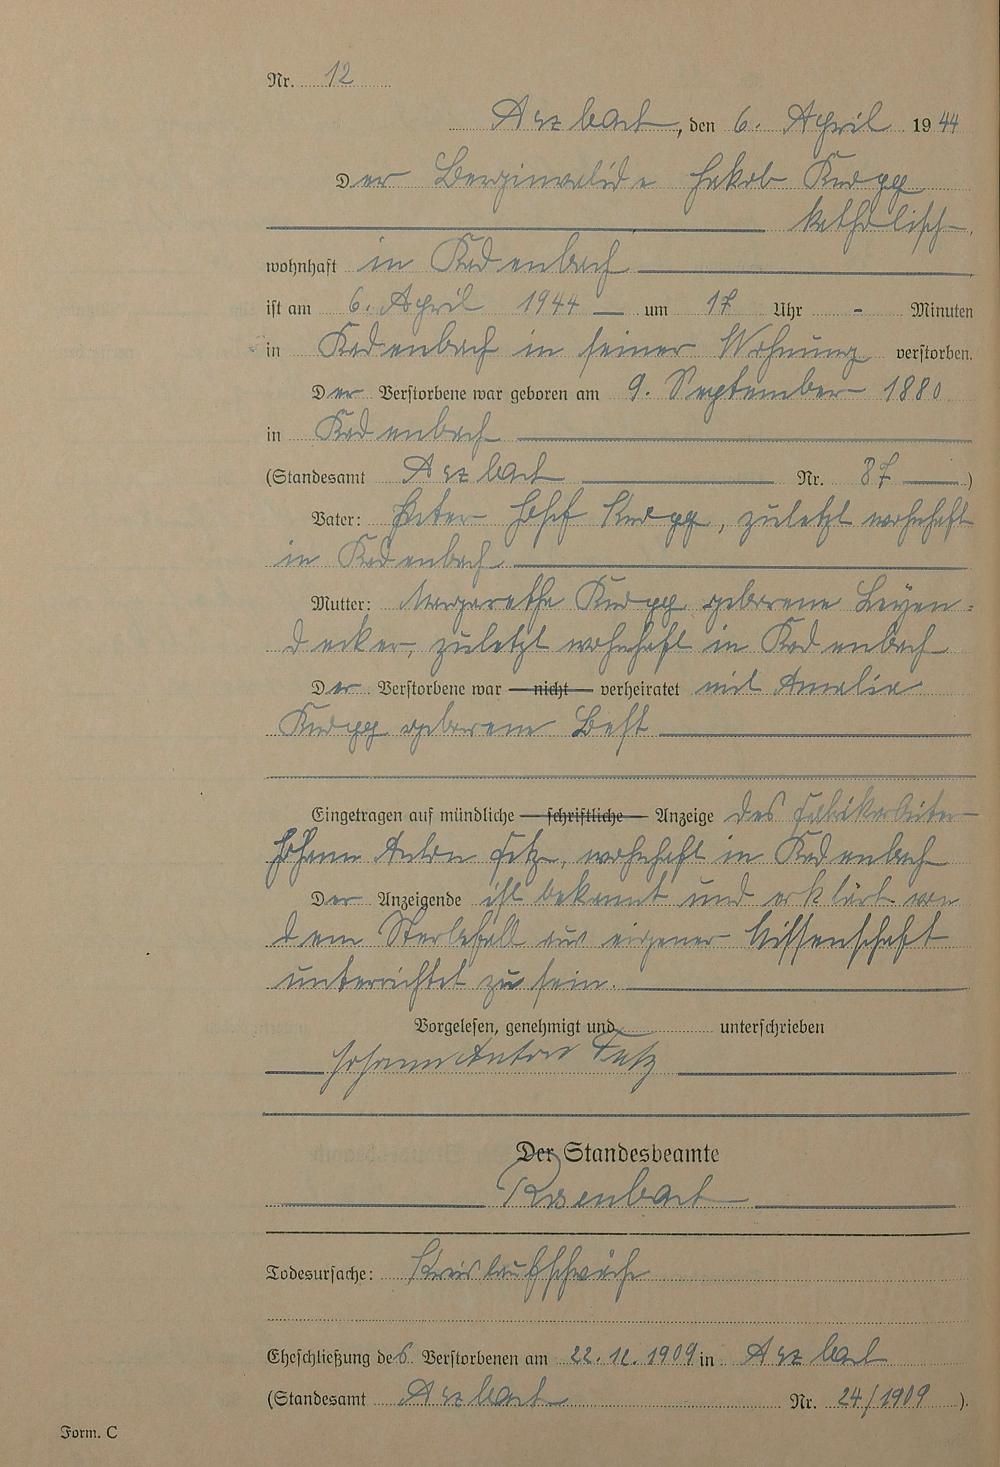 Nr. 12
Arzbach, den 6. April 1944
Der Berginvalide Jakob Knopp
katholisch,
wohnhaft in Kadenbach
ist am 6. April 1944 um 17 Uhr - Minuten
in Kadenbach in seiner Wohnung verstorben.
Der Verstorbene war geboren am 9. September 1880
in Kadenbach
(Standesamt Arzbach Nr. 87 )
Vater: Peter Josef Knopp, zuletzt wohnhaft
in Kadenbach
Mutter: Margarethe Knopp geborene Leyen=
decker, zuletzt wohnhaft in Kadenbach
Der Verstorbene war nicht verheiratet mit Amalie
Knopp geborene Best
Eingetragen auf mündliche schriftliche Anzeige des Fabrikarbeiter
Johann Anton, wohnhaft in Kadenbach
Der Anzeigende ist bekannt und erklärt von
dem Sterbefall aus eigener Wissenschaft
unterrichtet zu sein.
Vorgelesen, genehmigt und unterschrieben
Johann Anton
Der Standesbeamte
Rosenbach
Todesursache: Kreislaufschwäche
Eheschließung des Verstorbenen am 1909 in Arzbach
(Standesamt Arzbach Nr. 24/1909 ).
Form. C